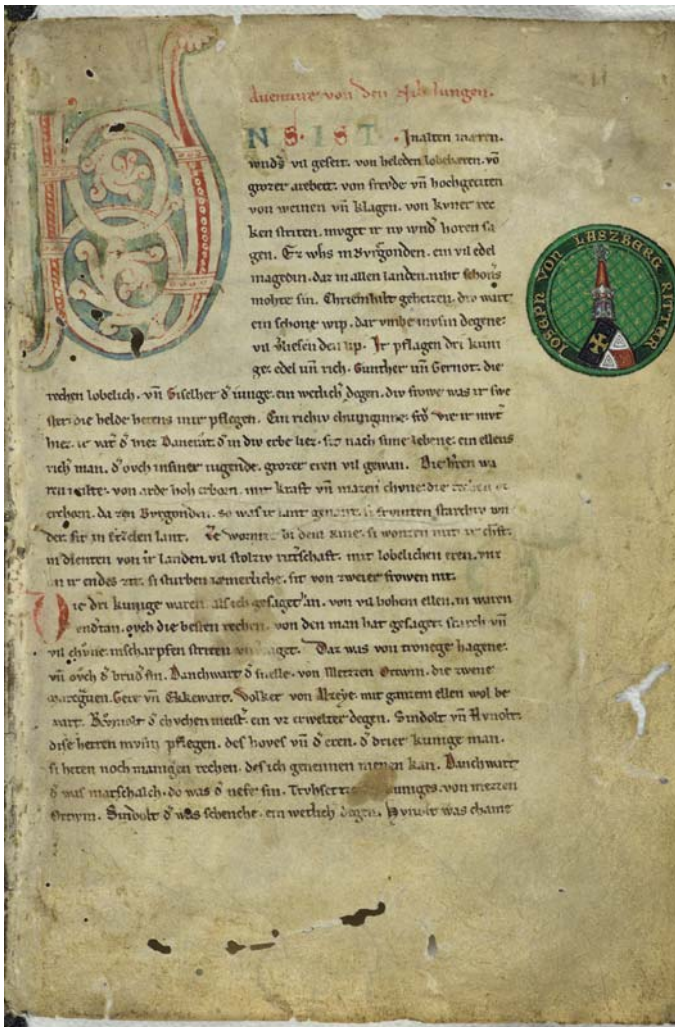 Auenture von den Nibelungen.
NS · IST · Jnalten mæren.
wnds vil geseit. von heleden lobebæren. vō
grozer arebeit. von frevde vn̄ hochgeciten
von weinen vn̄ klagen. von kvner rec
ken striten. mvget ir nv wnd horen sa
gen. Ez whs in Bvrgonden. ein vil edel
magedin. daz in allen landen. niht schoners
mohte sin. Chriemhilt geheizen. div wart
ein schone wip. dar vmbe mvsin degene.
vil vliesen den lip. Ir pflagen dri kuni
ge. edel vn̄ rich. Gunther vn̄ Gernot. die
rechen lobelich. vn̄ Giselher d iunge. ein wetlich degen. div frowe was ir swe
ster. die helde hetens inir pflegen. Ein richiv chuniginne. frŏ Vte ir mvt
hiez. ir vat d hiez Dancrat. d in div erbe liez. sit nach sime lebene. ein ellens
rich man. d ovch in siner iugende. grozer eren vil gewan. Die hren wa
ren milte. von arde hoh erborn. mit kraft vn̄ mazen chvne. die rechen vz
erchorn. da zen Bvrgonden. so was ir lant genant. si frvmten starchiv wn
der. sit in Etzelen lant. Ze wormze bi dem Rine. si wonten mit ir chft.
in dienten von ir landen. vil stolziv ritschaft. mit lobelichen eren. vnz
an ir endes zit. si sturben iæmerliche. sit von zweier frowen nit.
Die dri kunige waren. als ich gesaget han. von vil hohem ellen. in waren
vndtan. ovch die besten rechen. von den man hat gesaget. starch vn̄
vil chvne. in scharpfen striten vnverzaget. Daz was von tronege hagene.
vn̄ ovch d brud sin. Danchwart d snelle. von Metzen Ortwin. die zwene
marcgven. Gere vn̄ Ekkewart. Volker von Alzeye. mit ganzem ellen wol be
wart. Rvmolt d chvchen meist. ein vz erwelter degen. Sindolt vn̄ Hvnolt.
dise herren mvsin pflegen. des hoves vn̄ d eren. d drier kunige man.
si heten noch manigen rechen. des ich genennen nienen kan. Danchwart
d was marschalch. do was d nefe sin. Trvhsetze kuniges. von metzen
Ortwin. Sindolt d was schenche. ein wetlich degen. Hvnolt was chamr
JOSEPH VON LASZBERG RITTER